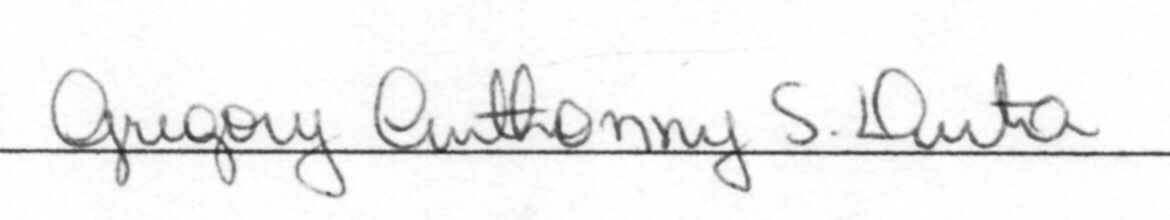 Gregory Anthonny S. Dutra